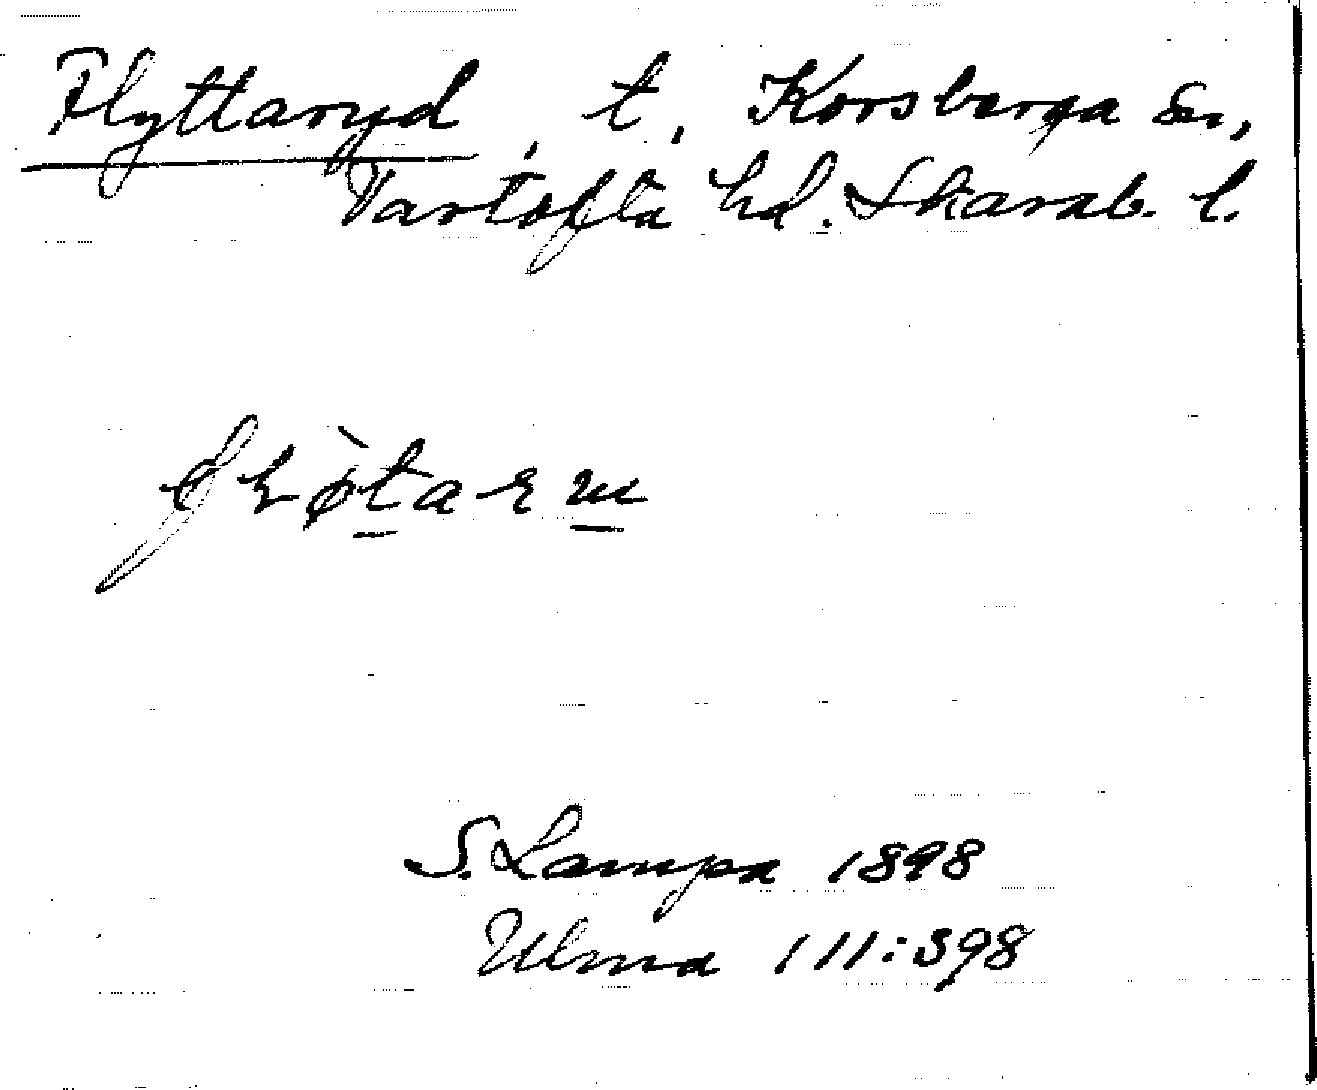 Flyttaryd, t, Korsberga sn,
Vartofta hd. Skarab. l.
S. Lampa 1898
Ulma 111:398